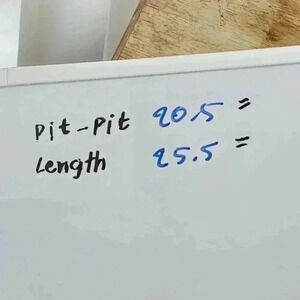 pit-pit 20.5"
Length 25.5"